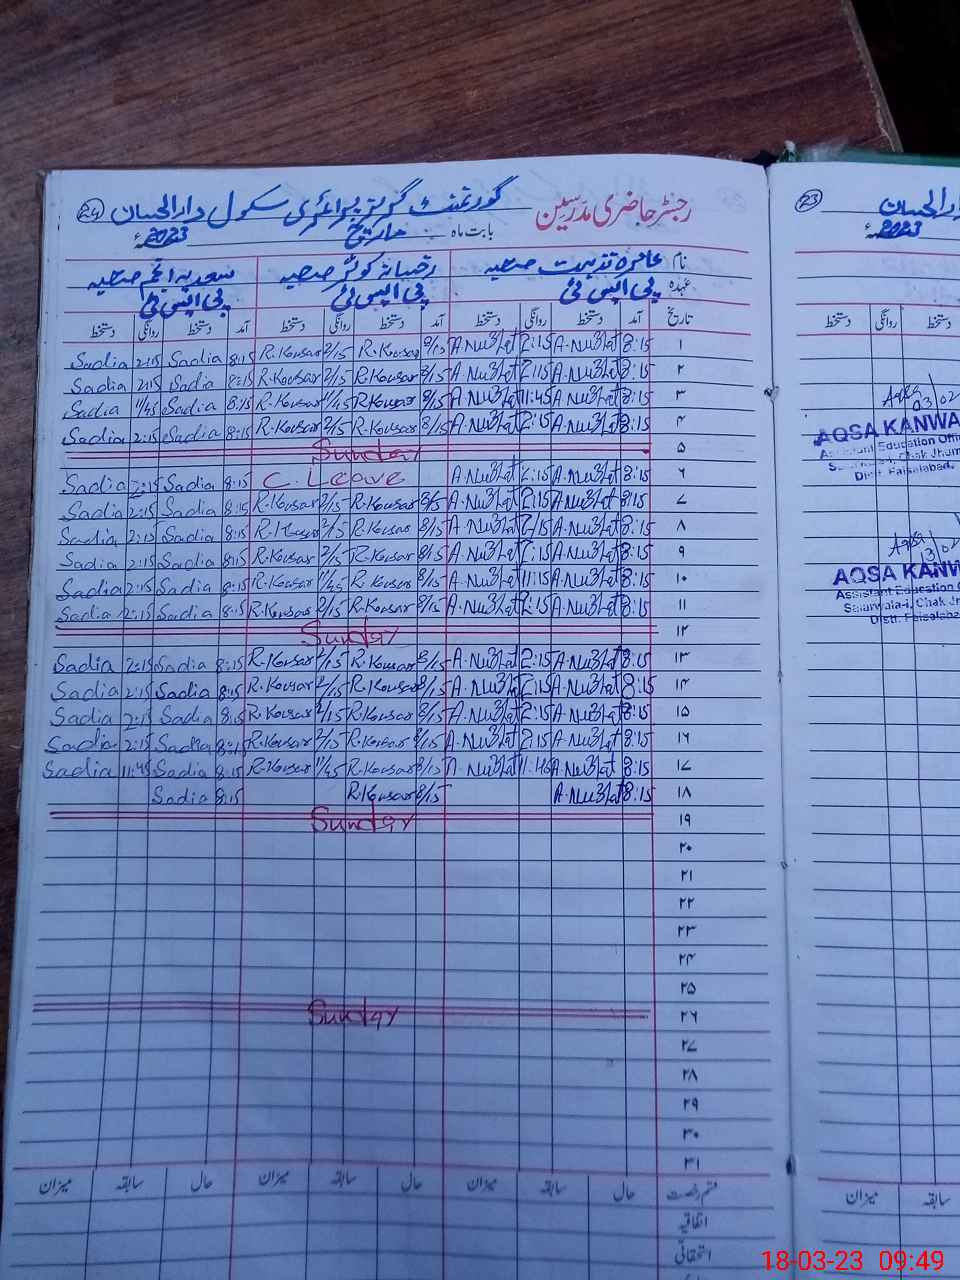 رجسٹر حاضری مدرسین گورنمنٹ گرلز پرائمری سکول دارالاحسان 24
بابت ماہ مارچ 2023ء
نام عامرہ نزہت صاحبہ رخسانہ کوثر صاحبہ سعدیہ انجم صاحبہ
عہدہ پی ایس ٹی پی ایس ٹی پی ایس ٹی
تاریخ آمد دستخط روانگی دستخط آمد دستخط روانگی دستخط آمد دستخط روانگی دستخط
۱ 8:15 A.Nuzhat 2:15 A.Nuzhat 8/15 R.Kousar 2/15 R.Kousar 8:15 Sadia 2:15 Sadia
۲ 8:15 A.Nuzhat 2:15 A.Nuzhat 8/15 R.Kousar 2/15 R.Kousar 8:15 Sadia 2:15 Sadia
۳ 8:15 A.Nuzhat 11:45 A.Nuzhat 8/15 R.Kousar 11/45 R.Kousar 8:15 Sadia 11/45 Sadia
۴ 8:15 A.Nuzhat 2:15 A.Nuzhat 8/15 R.Kousar 2/15 R.Kousar 8:15 Sadia 2:15 Sadia
۵ Sunday
۶ 8:15 A.Nuzhat 2:15 A.Nuzhat C. Leave 8:15 Sadia 2:15 Sadia
۷ 8:15 A.Nuzhat 2:15 A.Nuzhat 8/15 R.Kousar 2/15 R.Kousar 8:15 Sadia 2:15 Sadia
۸ 8:15 A.Nuzhat 2/15 A.Nuzhat 8/15 R.Kousar 2/15 R.Kousar 8:15 Sadia 2:15 Sadia
۹ 8:15 A.Nuzhat 2:15 A.Nuzhat 8/15 R.Kousar 2/15 R.Kousar 8:15 Sadia 2:15 Sadia
۱۰ 8:15 A.Nuzhat 11:15 A.Nuzhat 8/15 R.Kousar 11/45 R.Kousar 8:15 Sadia 2:15 Sadia
۱۱ 8:15 A.Nuzhat 2:15 A.Nuzhat 8/15 R.Kousar 2/15 R.Kousar 8:15 Sadia 2:15 Sadia
۱۲ Sunday
۱۳ 8:15 A.Nuzhat 2:15 A.Nuzhat 8/15 R.Kousar 2/15 R.Kousar 8:15 Sadia 2:15 Sadia
۱۴ 8:15 A.Nuzhat 2:15 A.Nuzhat 8/15 R.Kousar 2/15 R.Kousar 8:15 Sadia 2:15 Sadia
۱۵ 8:15 A.Nuzhat 2:15 A.Nuzhat 8/15 R.Kousar 2/15 R.Kousar 8:15 Sadia 2:15 Sadia
۱۶ 8:15 A.Nuzhat 2:15 A.Nuzhat 8/15 R.Kousar 2/15 R.Kousar 8:15 Sadia 2:15 Sadia
۱۷ 8:15 A.Nuzhat 11:45 A.Nuzhat 8/15 R.Kousar 11/45 R.Kousar 8:15 Sadia 11:45 Sadia
۱۸ 8:15 A.Nuzhat 8/15 R.Kousar 8:15 Sadia
۱۹ Sunday
۲۰
۲۱
۲۲
۲۳
۲۴
۲۵
۲۶ Sunday
۲۷
۲۸
۲۹
۳۰
۳۱
قسم رخصت حال سابقہ میزان حال سابقہ میزان حال سابقہ میزان
اتفاقیہ
استحقاقی
23
2023ء
دستخط روانگی دستخط
Aqsa
03/02
AQSA KANWA
Assistant Education Offi
Chak Jhum
Distt. Faisalabad.
Aqsa
13/02
AQSA KANW
Assistant Education
Salarwala-i, Chak Jh
Distt. Faisalaba
سابقہ میزان
18-03-23 09:49